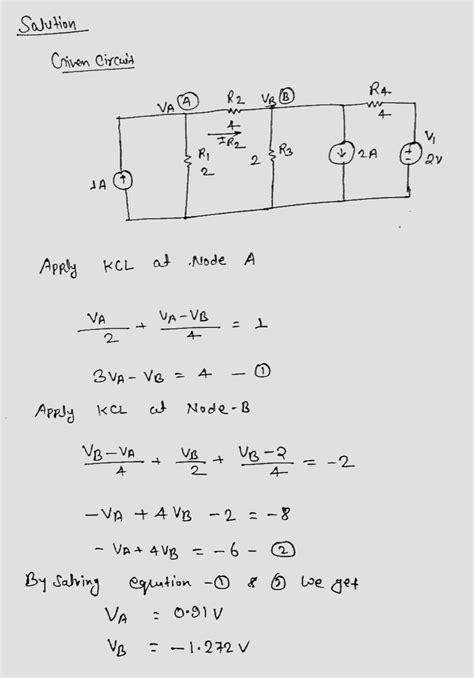 Solution
Given Circuit
VA Ⓐ R2 VB Ⓑ R4
4 4
IR2
R1 2 R3 2A V1
2 2V
1A
Apply KCL at Node A
VA/2 + VA-VB/4 = 1
3VA - VB = 4 - ①
Apply KCL at Node-B
VB-VA/4 + VB/2 + VB-2/4 = -2
-VA + 4VB - 2 = -8
- VA + 4VB = -6 - ②
By Salving eqution -① & ② we get
VA = 0.91V
VB = -1.272V